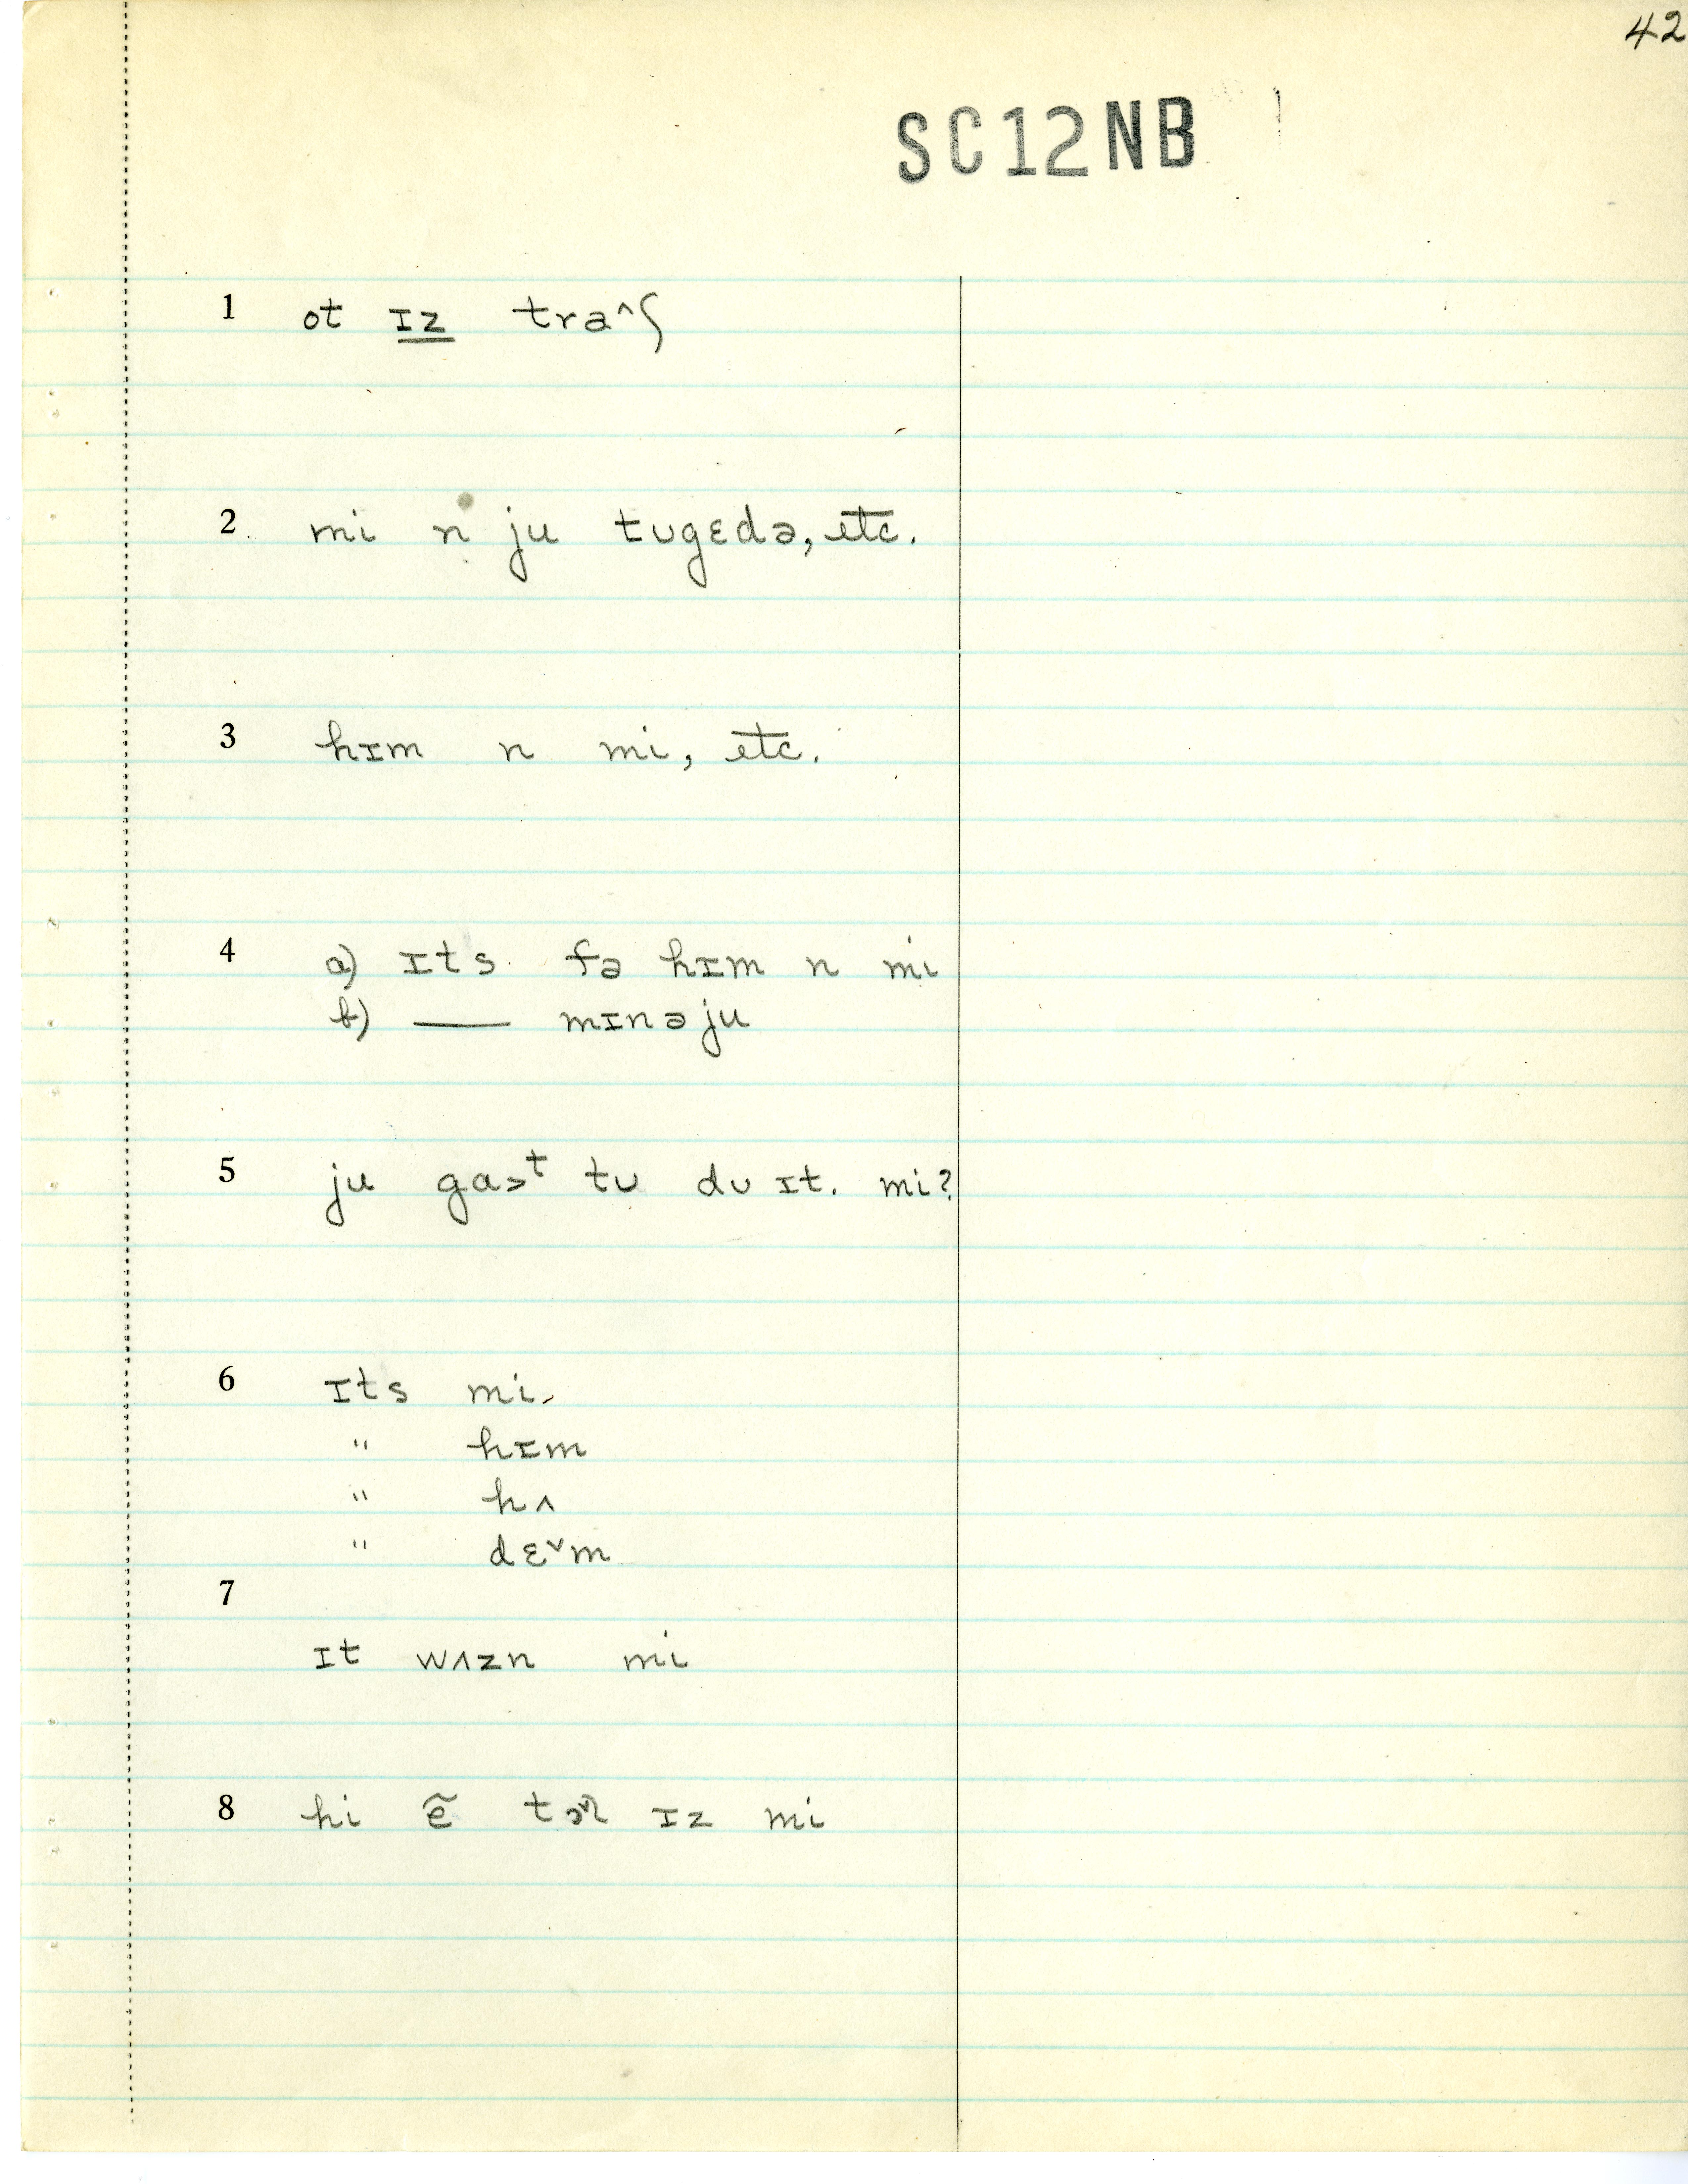 42
SC12NB
1 ot ɪz traˆʃ
2. mi n ju tʊgɛdə, etc.
3 hɪm n mi, etc.
4 a) ɪts fə hɪm n mi
b) — mɪnəju
5 ju ga˃ᵗ tʊ dʊ ɪt. mi?
6 ɪts mi
" hɪm
" hʌ
" dɛ˅m
7
ɪt wʌzn mi
8 hi ẽ ɪz mi